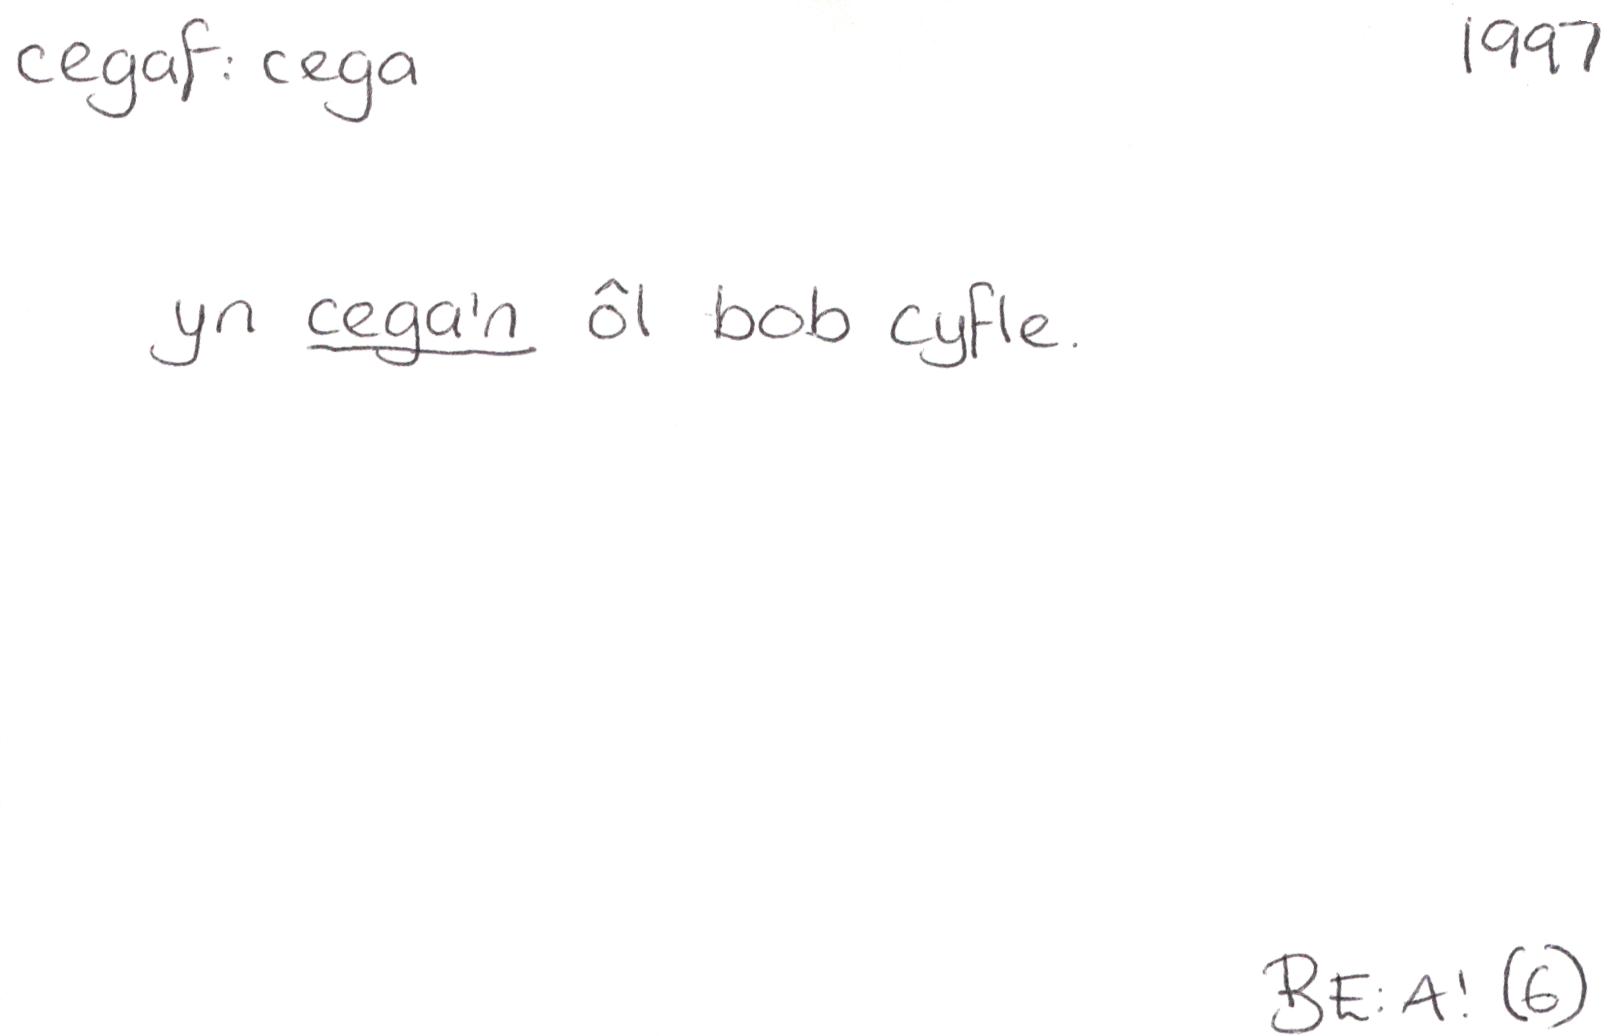 cegaf: cega 1997
yn cega'n ôl bob cyfle.
BE: A! (6)